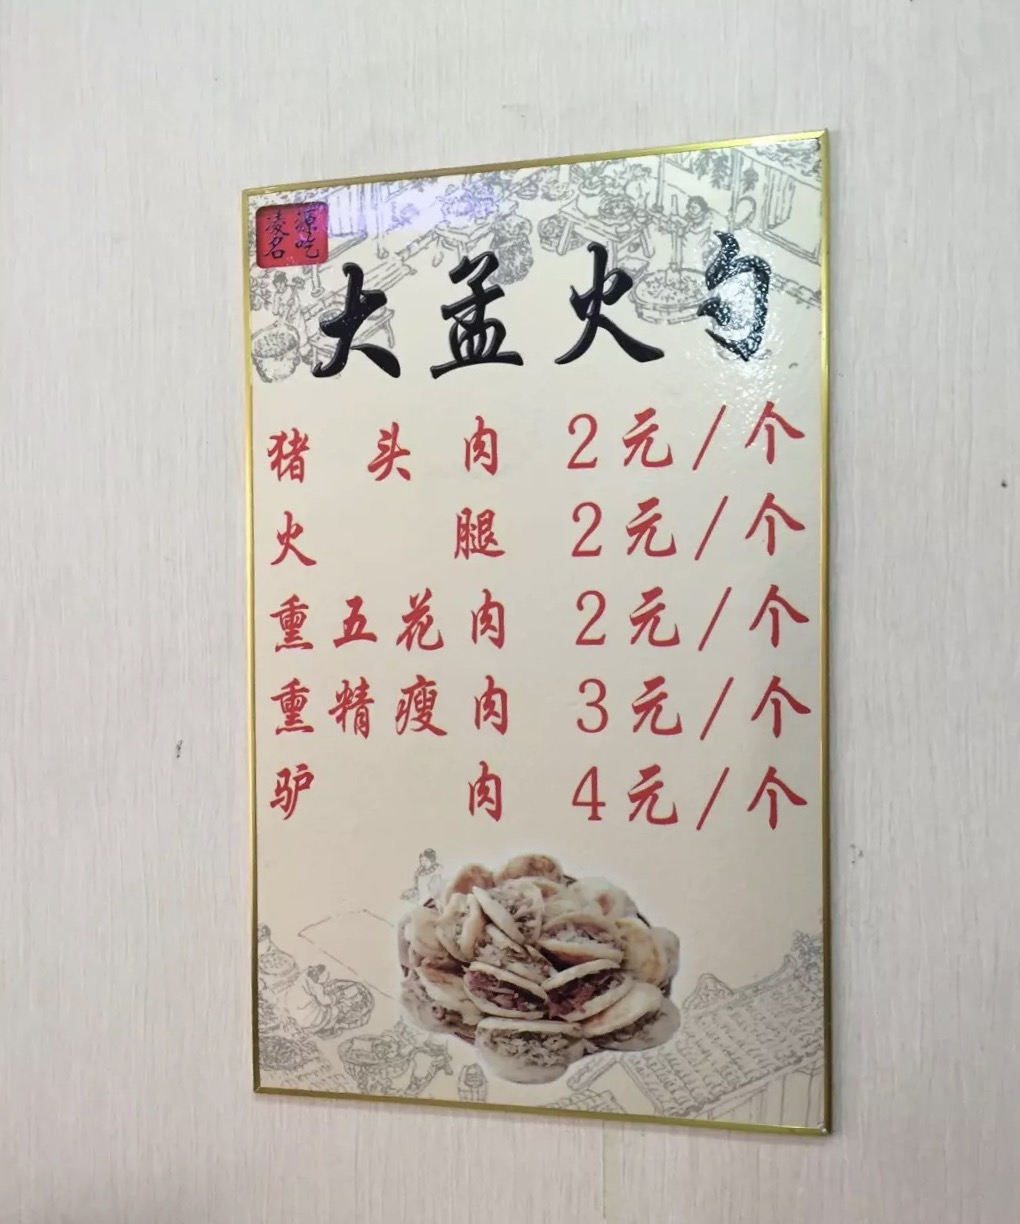 凌源
名吃
大孟火勺
猪头肉 2元/个
火腿 2元/个
熏五花肉 2元/个
熏精瘦肉 3元/个
驴肉 4元/个